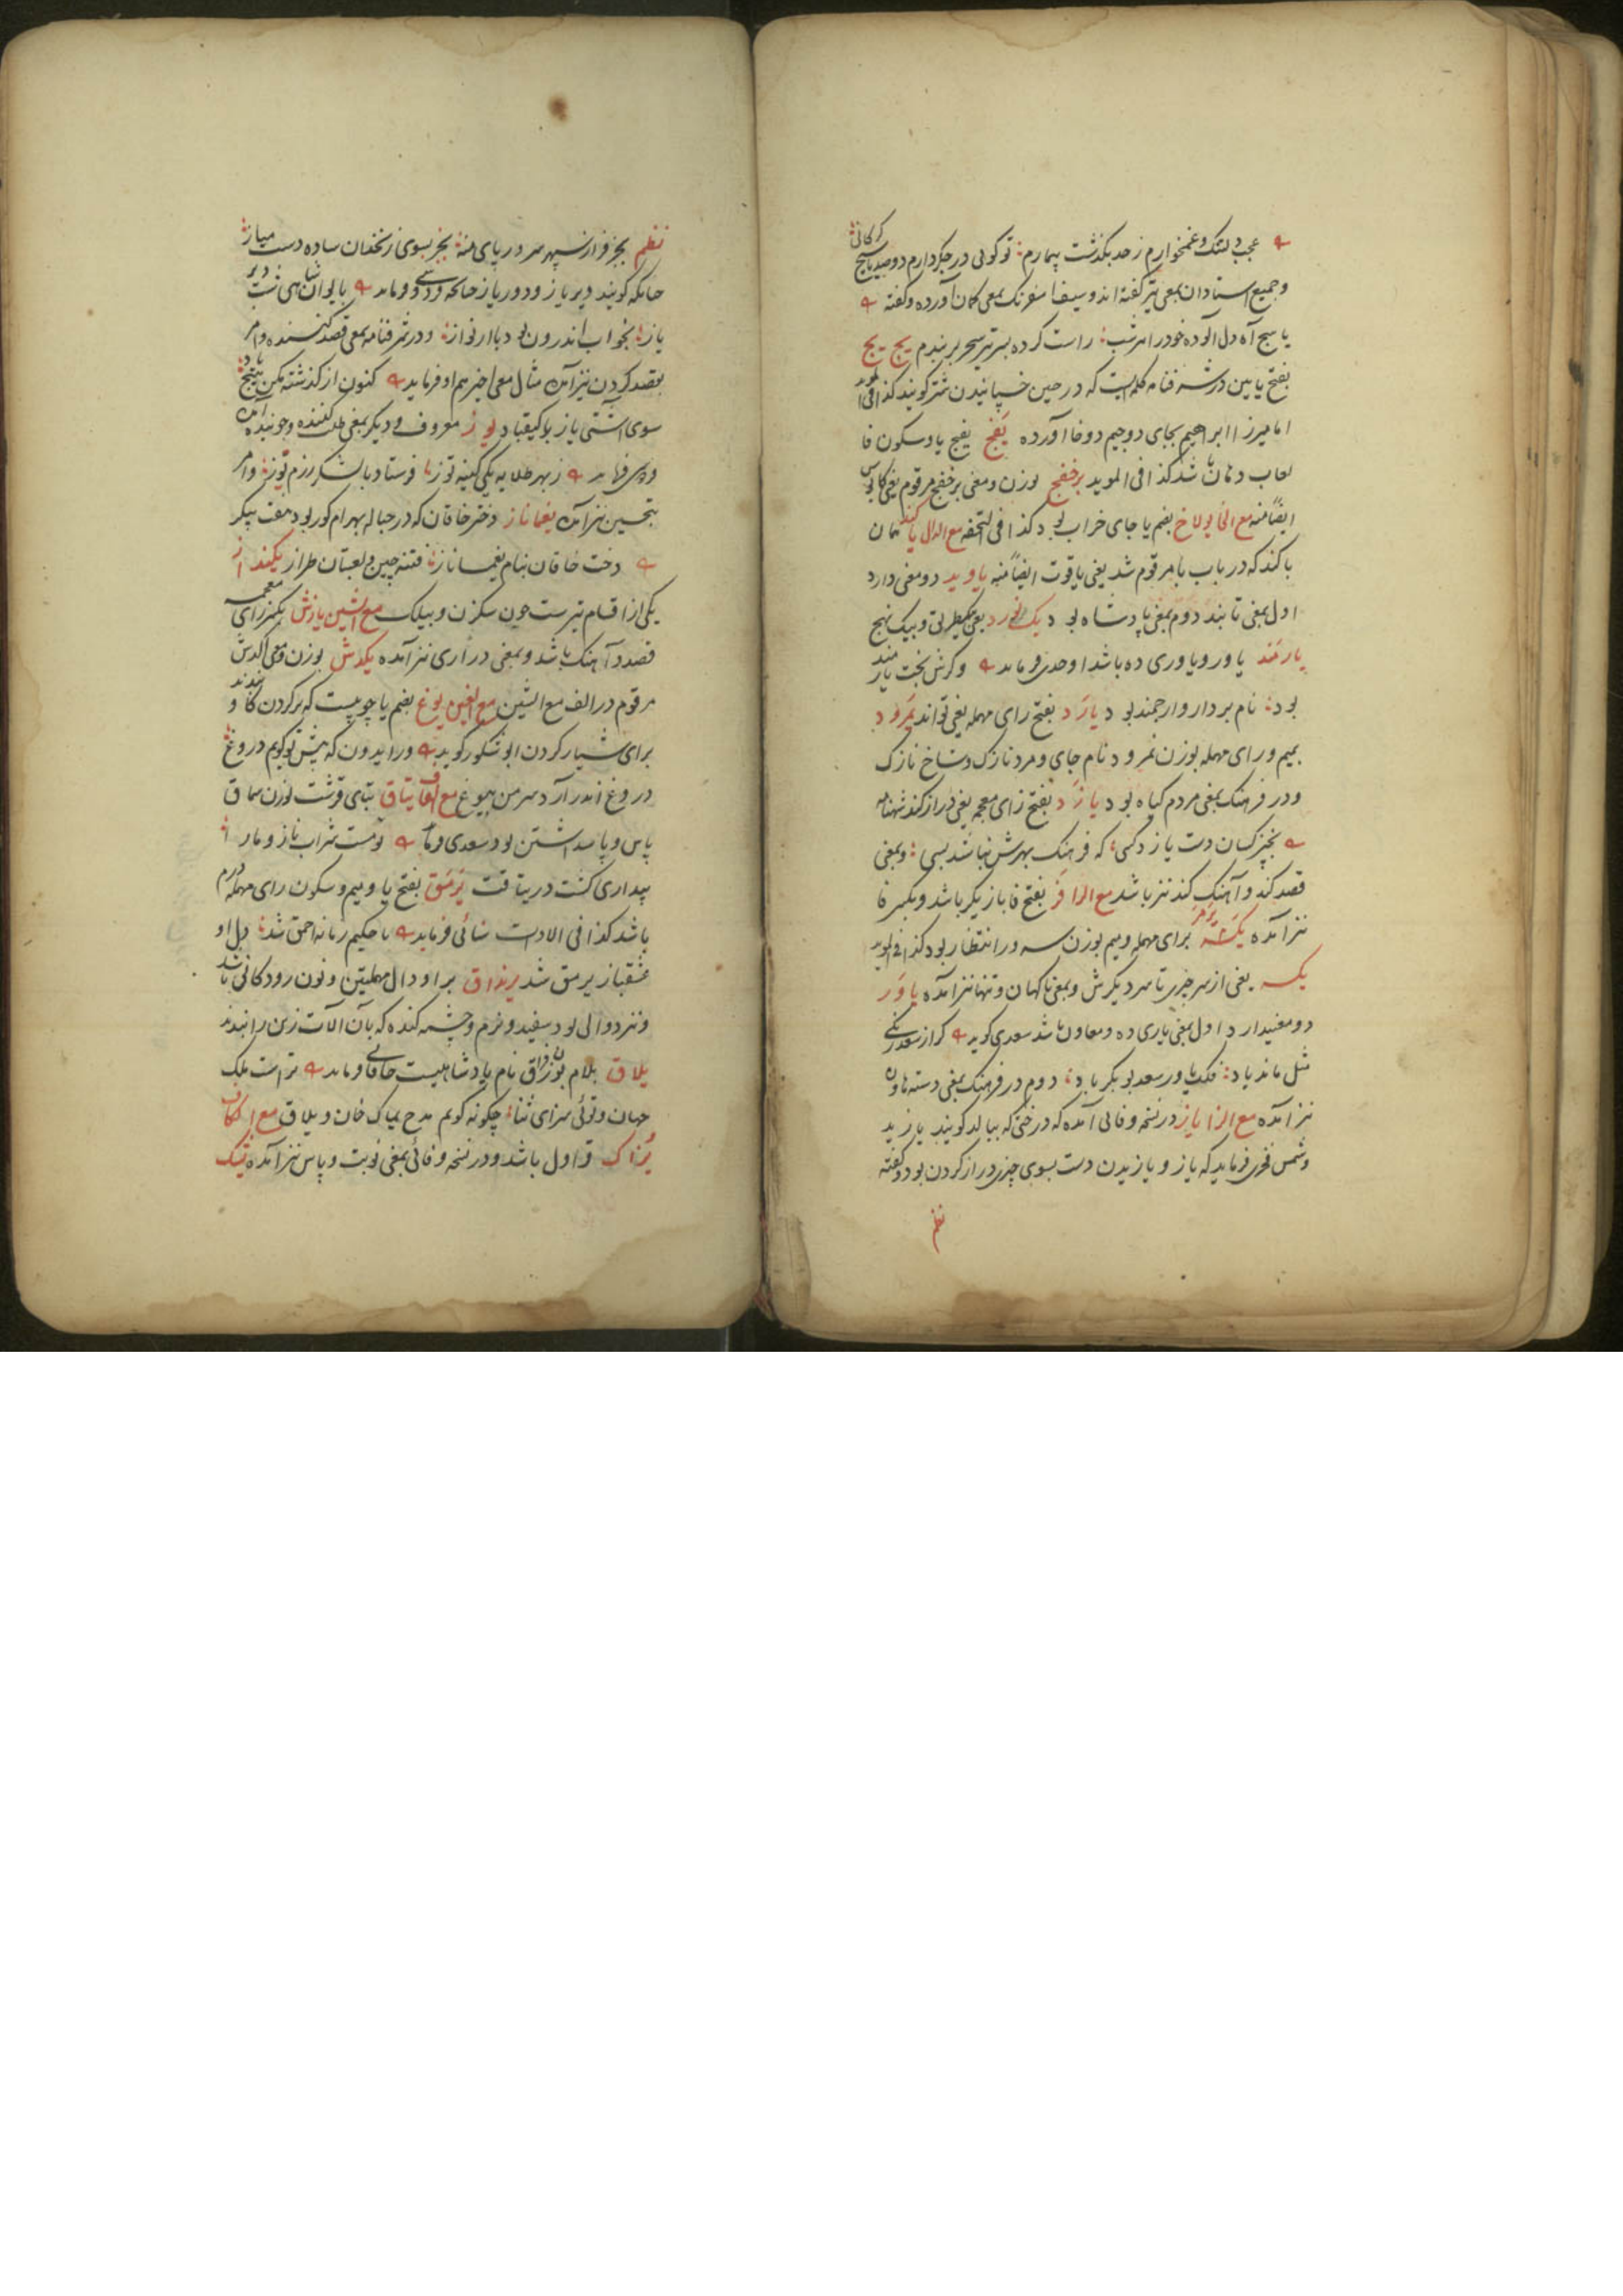 عجب دلتنک و غمخوارم ز حد بکذشت تیمارم تو کوئی در جکر دارم دو صد یاسج کرکانی
و جمیع استادان بمعنی تیر کفته اند و سیفی اسفرنک بمعنی کمان آورده و کفته
یاسج آه دل آلوده خود را امشب راست کرده بسر تیر سحر بر بندم یج یج
بفتح یایین در شرفنامه کلمه ایست که در حین خسپانیدن شتر کویند کذا فی المؤید
اما میرزا ابراهیم بجای دو جیم دو خا آورده یفج یفج یا و سکون فا
لعاب دهان باشد کذا فی الموید برخفج بوزن و معنی برخفج مرقوم یعنی کابوس
ایضاً منه مع الخا یولاخ بضم یا جای خراب بود کذا فی التحفه مع الدال یاکند همان
باکند که در باب با مرقوم شد یعنی یاقوت ایضاً منه یاوید دو معنی دارد
اول بمعنی تابند دوم بمعنی پادشاه بود یک نورد یعنی یکطریق و بیک نهج
یارمند یاور و یاوری ده باشد اوحدی فرماید و کرش بخت یارمند
بود نام بردار و ارجمند بود یارد بفتح رای مهمله یعنی تواند یمرود
بمیم و رای مهمله بوزن نمرود نام جای و مرد نازک و شاخ نازک
و در فرهنک بمعنی مردم کیاه بود یازد بفتح زای معجمه یعنی دراز کند شهنامه
بچیز کسان دست یازد کسی که فرهنک بهرش نباشد بسی و بمعنی
قصد کند و آهنک کند نیز باشد مع الرا فر بفتح فا بازیکر باشد و بکسر فا
نیز آمده یکسر یرمر برای مهمله و میم بوزن سه ور انتظار بود کذا فی الموید
یکسر یعنی از سر چیزی تا سر دیکرش و بمعنی ناکهان و تنها نیز آمده یاور
دو معنی دارد اول بمعنی یاری ده و معاون باشد سعدی کوید کر از سعد زنکی
مثل ماند یاد فلک یاور سعد بوبکر باد دوم در فرهنک بمعنی دسته هاون
نیز آمده مع الزا یاز در نسخه وفائی آمده که درختی که ببالد کویند یازید
و شمس فخری فرماید که یاز و یازیدن دست بسوی چیزی دراز کردن بود و کفته
نظم
نظم بجز فراز سپهر سروریای منه بجز بسوی زنخدان ساده دست میاز
چنانکه کویند دیر یاز و دور یاز چنانکه فردوسی فرماید بایوان شبا هی شب دیر
یاز بخواب اندرون بود با ارنواز و در شرفنامه بمعنی قصد کننده و امر
بقصد کردن نیز آمده مثال معنی اخیر هم او فرماید کنون از کذشته مکن هیچ یاد
سوی آشتی یاز با کیقباد یوز معروف و دیکر بمعنی طلب کننده و جوینده آمده
فردوسی فرماید ز بهر طلایه یکی کینه توز فرستاد با لشکر رزم توز و امر
بتجسس نیز آمده یغماناز دختر خاقان که در حباله بهرام کور بود هفت پیکر
دخت خاقان بنام یغماناز فتنه چین و لعبتان طراز یکند از
یکی از اقسام تیر ست چون سکزن و بیلک مع الشین یازش بکسر زای معجمه
قصد و آهنک باشد و بمعنی درازی نیز آمده یکدش بوزن و معنی اکدش
مرقوم در الف مع الشین مع الغین یوغ بضم یا چوبیست که بر کردن کاو بندند
برای شیار کردن ابو شکور کوید ور ایدون که پیش تو کویم دروغ
دروغ اندر آرد سر من بیوغ مع القاف یتاق بتای قرشت بوزن سماق
پاس و پاسداشتن بود سعدی فرماید تو مست شراب ناز و ما را
بیداری کشت در یتاقت یرمق بفتح یا و میم و سکون رای مهمله درم
باشد کذا فی الادات سنائی فرماید تا حکیم زمانه احمق شد دل او
عشقباز یرمق شد یرنداق برا و دال مهملتین و نون رودکانی باشد
و نیز دوالی بود سفید و نرم و چشمه کنده که بآن آلات زین را بندند
یلاق بلام بوزن براق نام پادشاهیست خاقانی فرماید تراست ملک
جهان و توئی سزای ثنا چکونه کویم مدح یماک خان و یلاق مع الکاف
یزاک قراول باشد و در نسخه وفائی بمعنی نوبت و پاس نیز آمده یتک